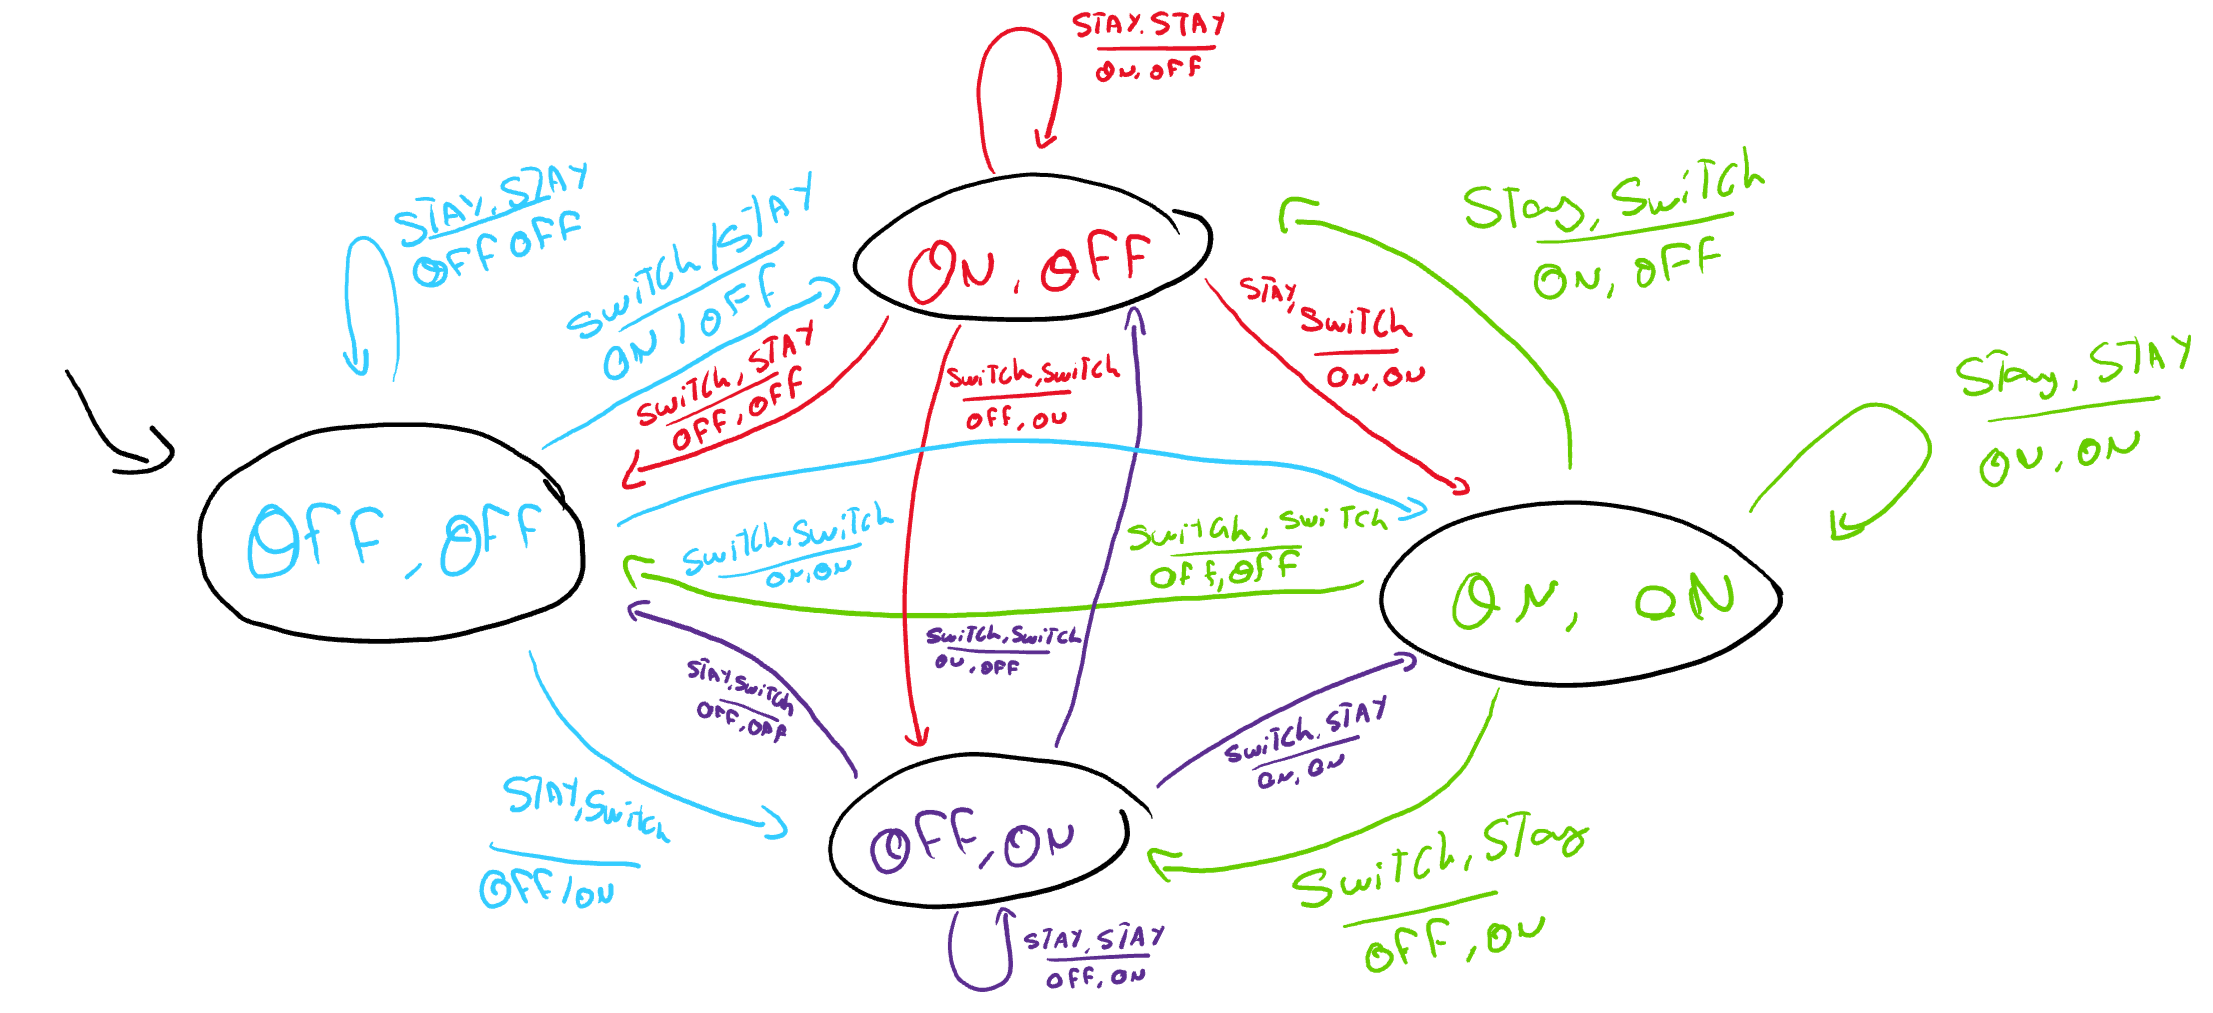 STAY, STAY
ON, OFF
STAY, STAY
OFF OFF
Switch / STAY
ON / OFF
ON, OFF
Stay, Switch
ON, OFF
STAY,
Switch
ON, ON
Switch, STAY
OFF, OFF
Switch, Switch
OFF, ON
Stay, STAY
ON, ON
OFF, OFF
Switch, Switch
ON, ON
Switch, Switch
OFF, OFF
ON, ON
Switch, Switch
ON, OFF
STAY, Switch
OFF, OFF
Switch, STAY
ON, ON
STAY, Switch
OFF / ON
OFF, ON
Switch, Stay
OFF, ON
STAY, STAY
OFF, ON